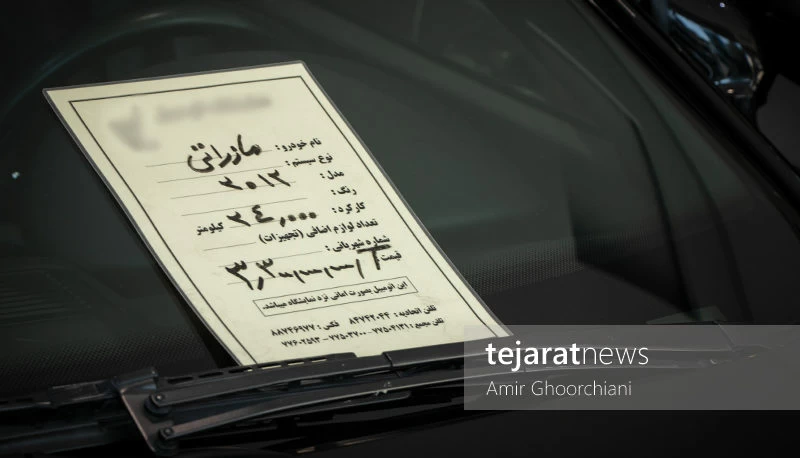 نام خودرو : مازراتی
نوع سیستم :
مدل : ۲۰۱۲
رنگ :
کارکرد : ۲۴,۰۰۰ کیلومتر
تعداد لوازم اضافی (تجهیزات)
شماره شهربانی :
قیمت
این اتومبیل بصورت امانی نزد نمایشگاه میباشد.
تلفن اتحادیه : ۸۴۷۴۲۰۴۴ فکس : ۸۸۷۴۶۹۷۷
تلفن مجمع :
tejaratnews
Amir Ghoorchiani